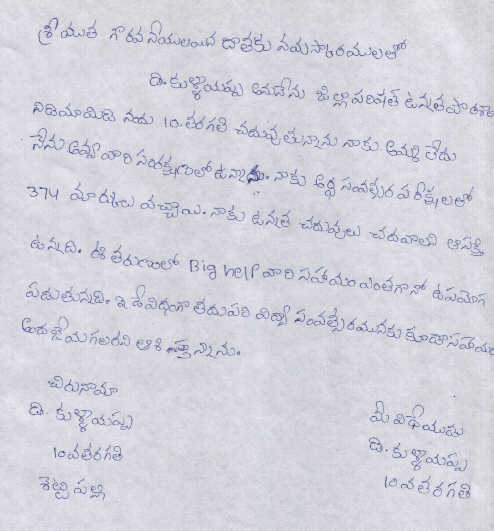 శ్రీయుత గౌరవనీయులయిన దాతకు నమస్కారములతో
డి. కుళ్ళాయప్ప అనబడేను జిల్లా పరిషత్ ఉన్నత పాఠశాల
నిడియామిడి నందు 10. తరగతి చదువుతున్నాను నాకు అమ్మ లేదు
నేను అవ్వ వారి సంరక్షణలో ఉన్నాను. నాకు అర్ధ సంవత్సర పరీక్షలలో
374 మార్కులు వచ్చాయి. నాకు ఉన్నత చదువులు చదవాలని ఆసక్తి
ఉన్నది. ఈ తరుణంలో Big help వారి సహాయం ఎంతగానో ఉపయోగ
పడుతున్నది. ఇదేవిధంగా తదుపరి విద్యా సంవత్సరమునకు కూడా సహాయం
అందజేయగలరని ఆశిస్తున్నాను.
చిరునామా
డి. కుళ్ళాయప్ప
10వ తరగతి
శెట్టిపల్లి
మీ విధేయుడు
డి. కుళ్ళాయప్ప
10వ తరగతి